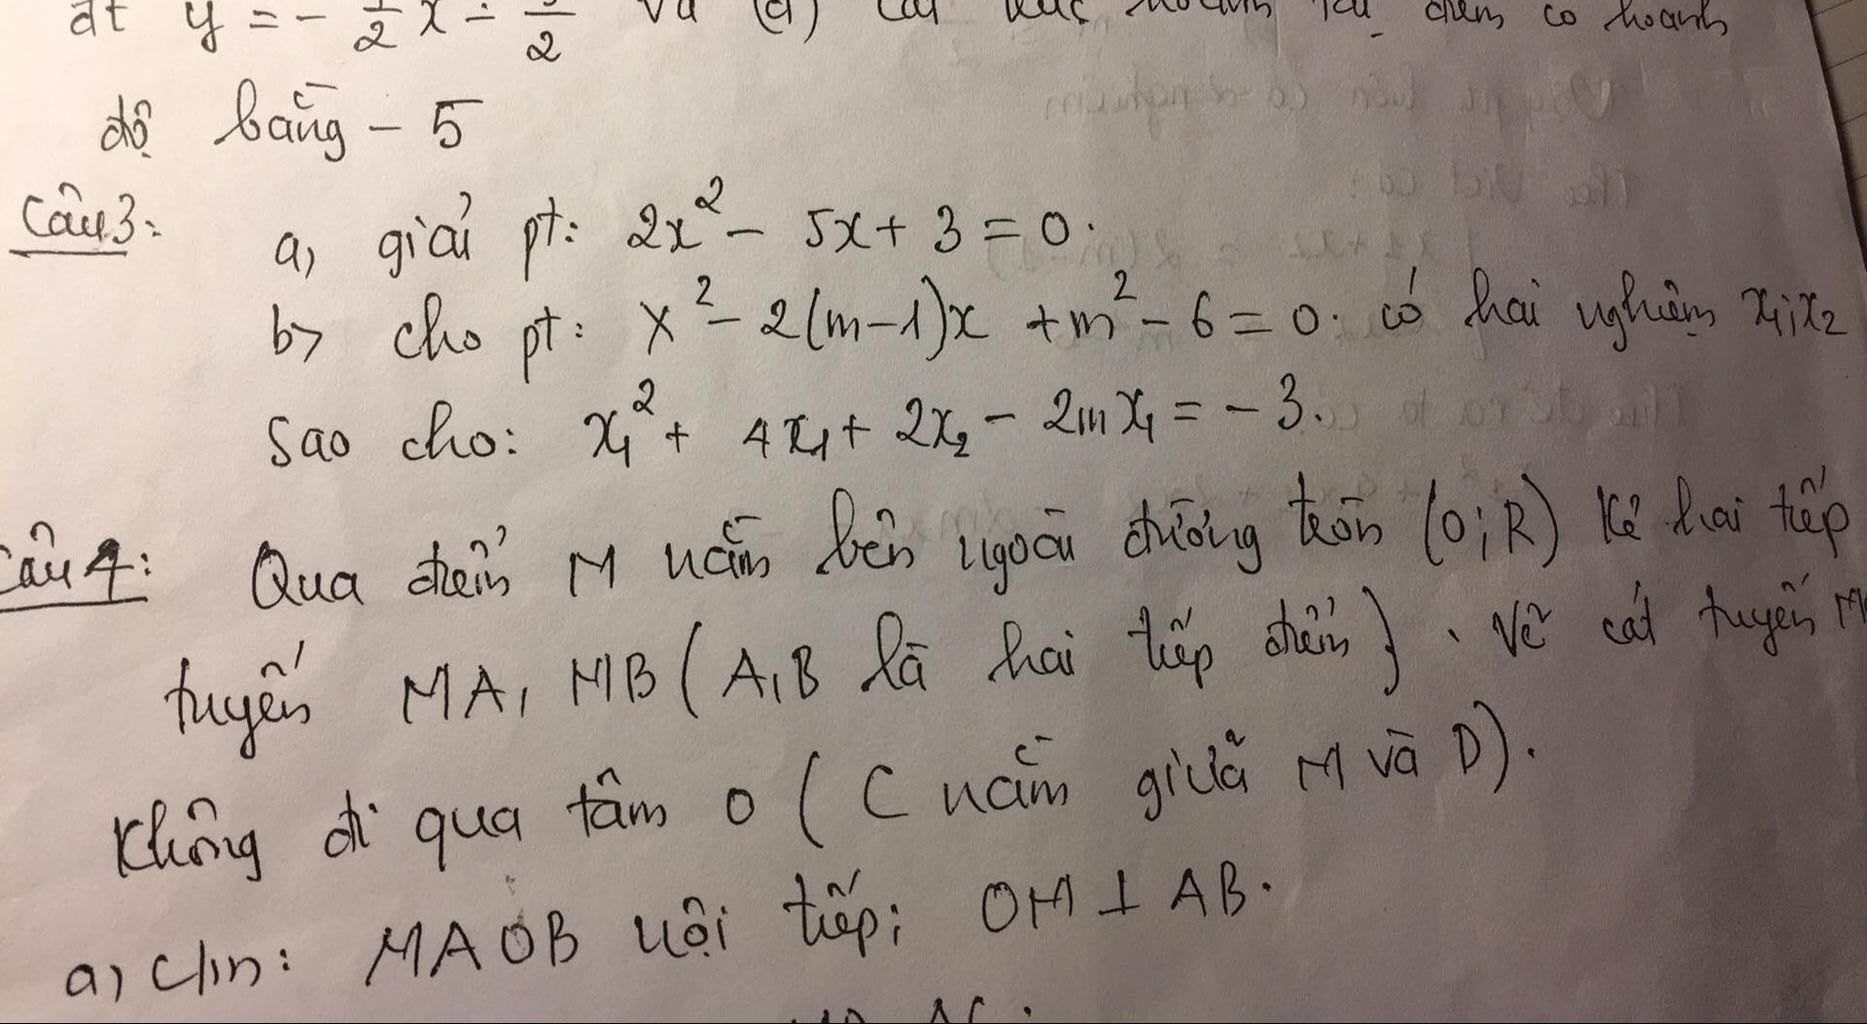 đt y = - 1/2 x - 5/2 và (d) cắt trục hoành tại điểm có hoành
độ bằng - 5
Câu 3: a, giải pt: 2x² - 5x + 3 = 0.
b> cho pt: x² - 2(m-1)x + m² - 6 = 0. có hai nghiệm x₁; x₂
sao cho: x₁² + 4x₁ + 2x₂ - 2mx₁ = - 3.
Câu 4: Qua điểm M nằm bên ngoài đường tròn (O; R) kẻ hai tiếp
tuyến MA, MB (A, B là hai tiếp điểm). Vẽ cát tuyến M
không đi qua tâm O (C nằm giữa M và D).
a, c/m: MAOB nội tiếp; OM ⊥ AB.